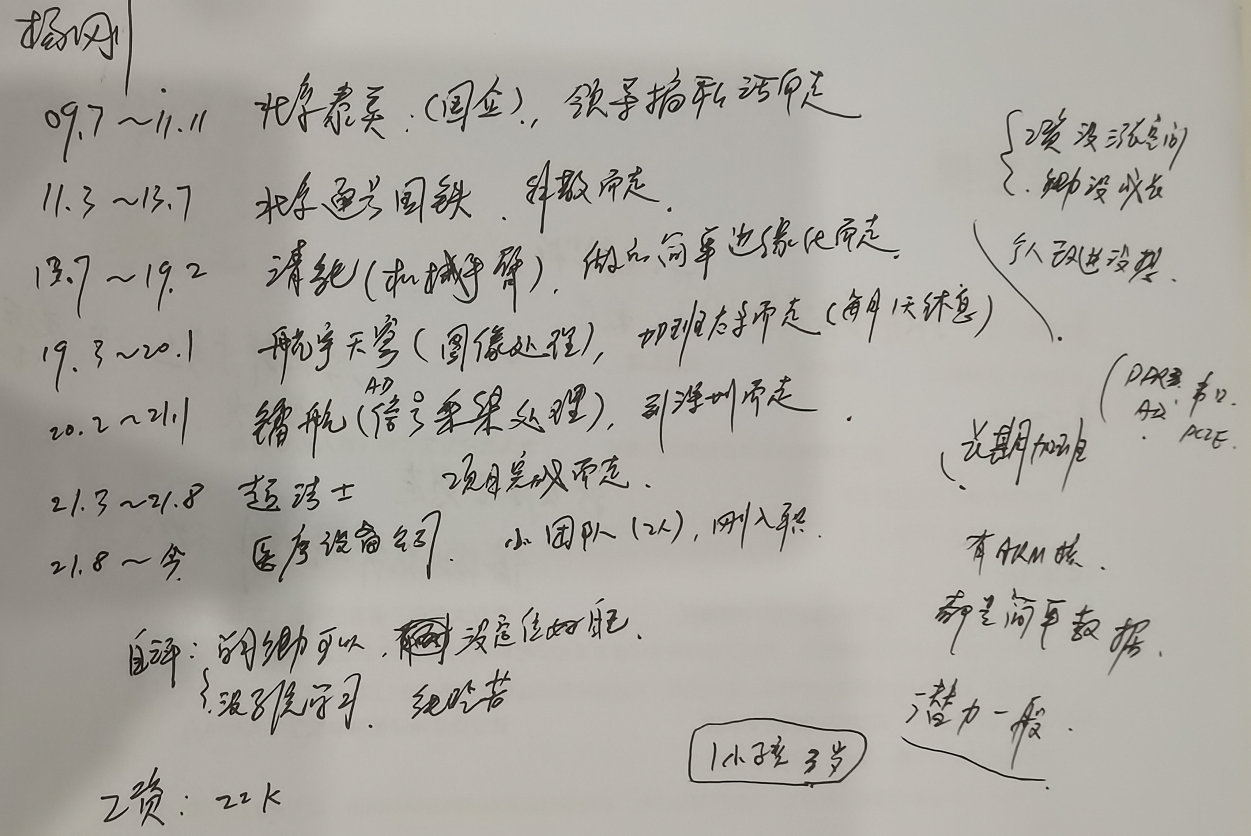 杨刚
09.7～11.11 北京泰美.(国企)., 领导搞私活而走
11.3～13.7 北京通号国铁. 解散而走.
13.7～19.2 清能(机械手臂), 做方向单边缘化而走.
19.3～20.1 航宇天穹(图像处理), 加班太多而走(每月1天休息)
20.2～21.1 镭航(AD信号采集处理), 到深圳而走
21.3～21.8 超洁士 项目完成而走.
21.8～今 医疗设备公司. 小团队(2人), 刚入职.
自评: 能力可以, 没定位好自己.
没系统学习. 能吃苦
工资: 22K
工资没涨空间
能力没成长
个人改进没想.
长期加班
AD. 串口.
PCIE.
有ARM核.
都是简单数据.
潜力一般.
1小孩 3岁